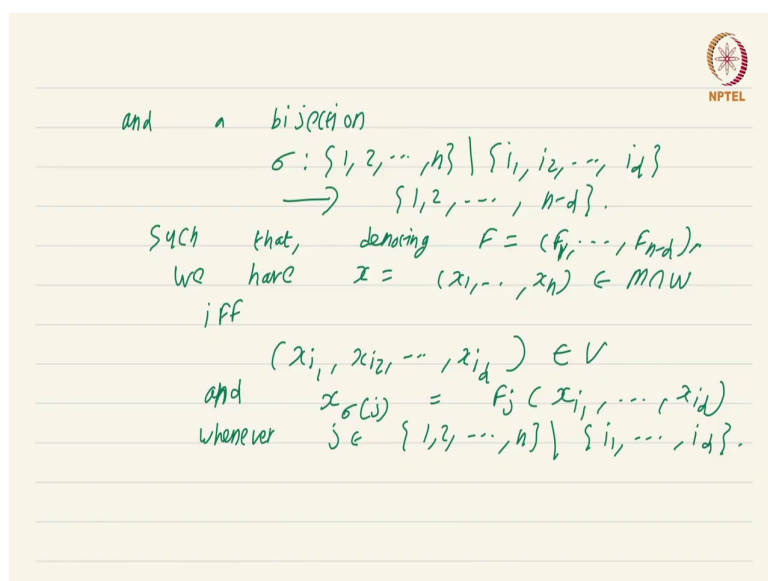 NPTEL
and a bijection
σ : {1, 2, ..., n} \ {i₁, i₂, ..., i_d}
⟶ {1, 2, ..., n-d}.
Such that, denoting F = (F₁, ..., F_{n-d}),
we have x = (x₁, .., x_n) ∈ M∩W
iff
(x_{i₁}, x_{i₂}, ..., x_{i_d}) ∈ V
and x_{σ(j)} = F_j (x_{i₁}, ..., x_{i_d})
whenever j ∈ {1, 2, ..., n} \ {i₁, ..., i_d}.